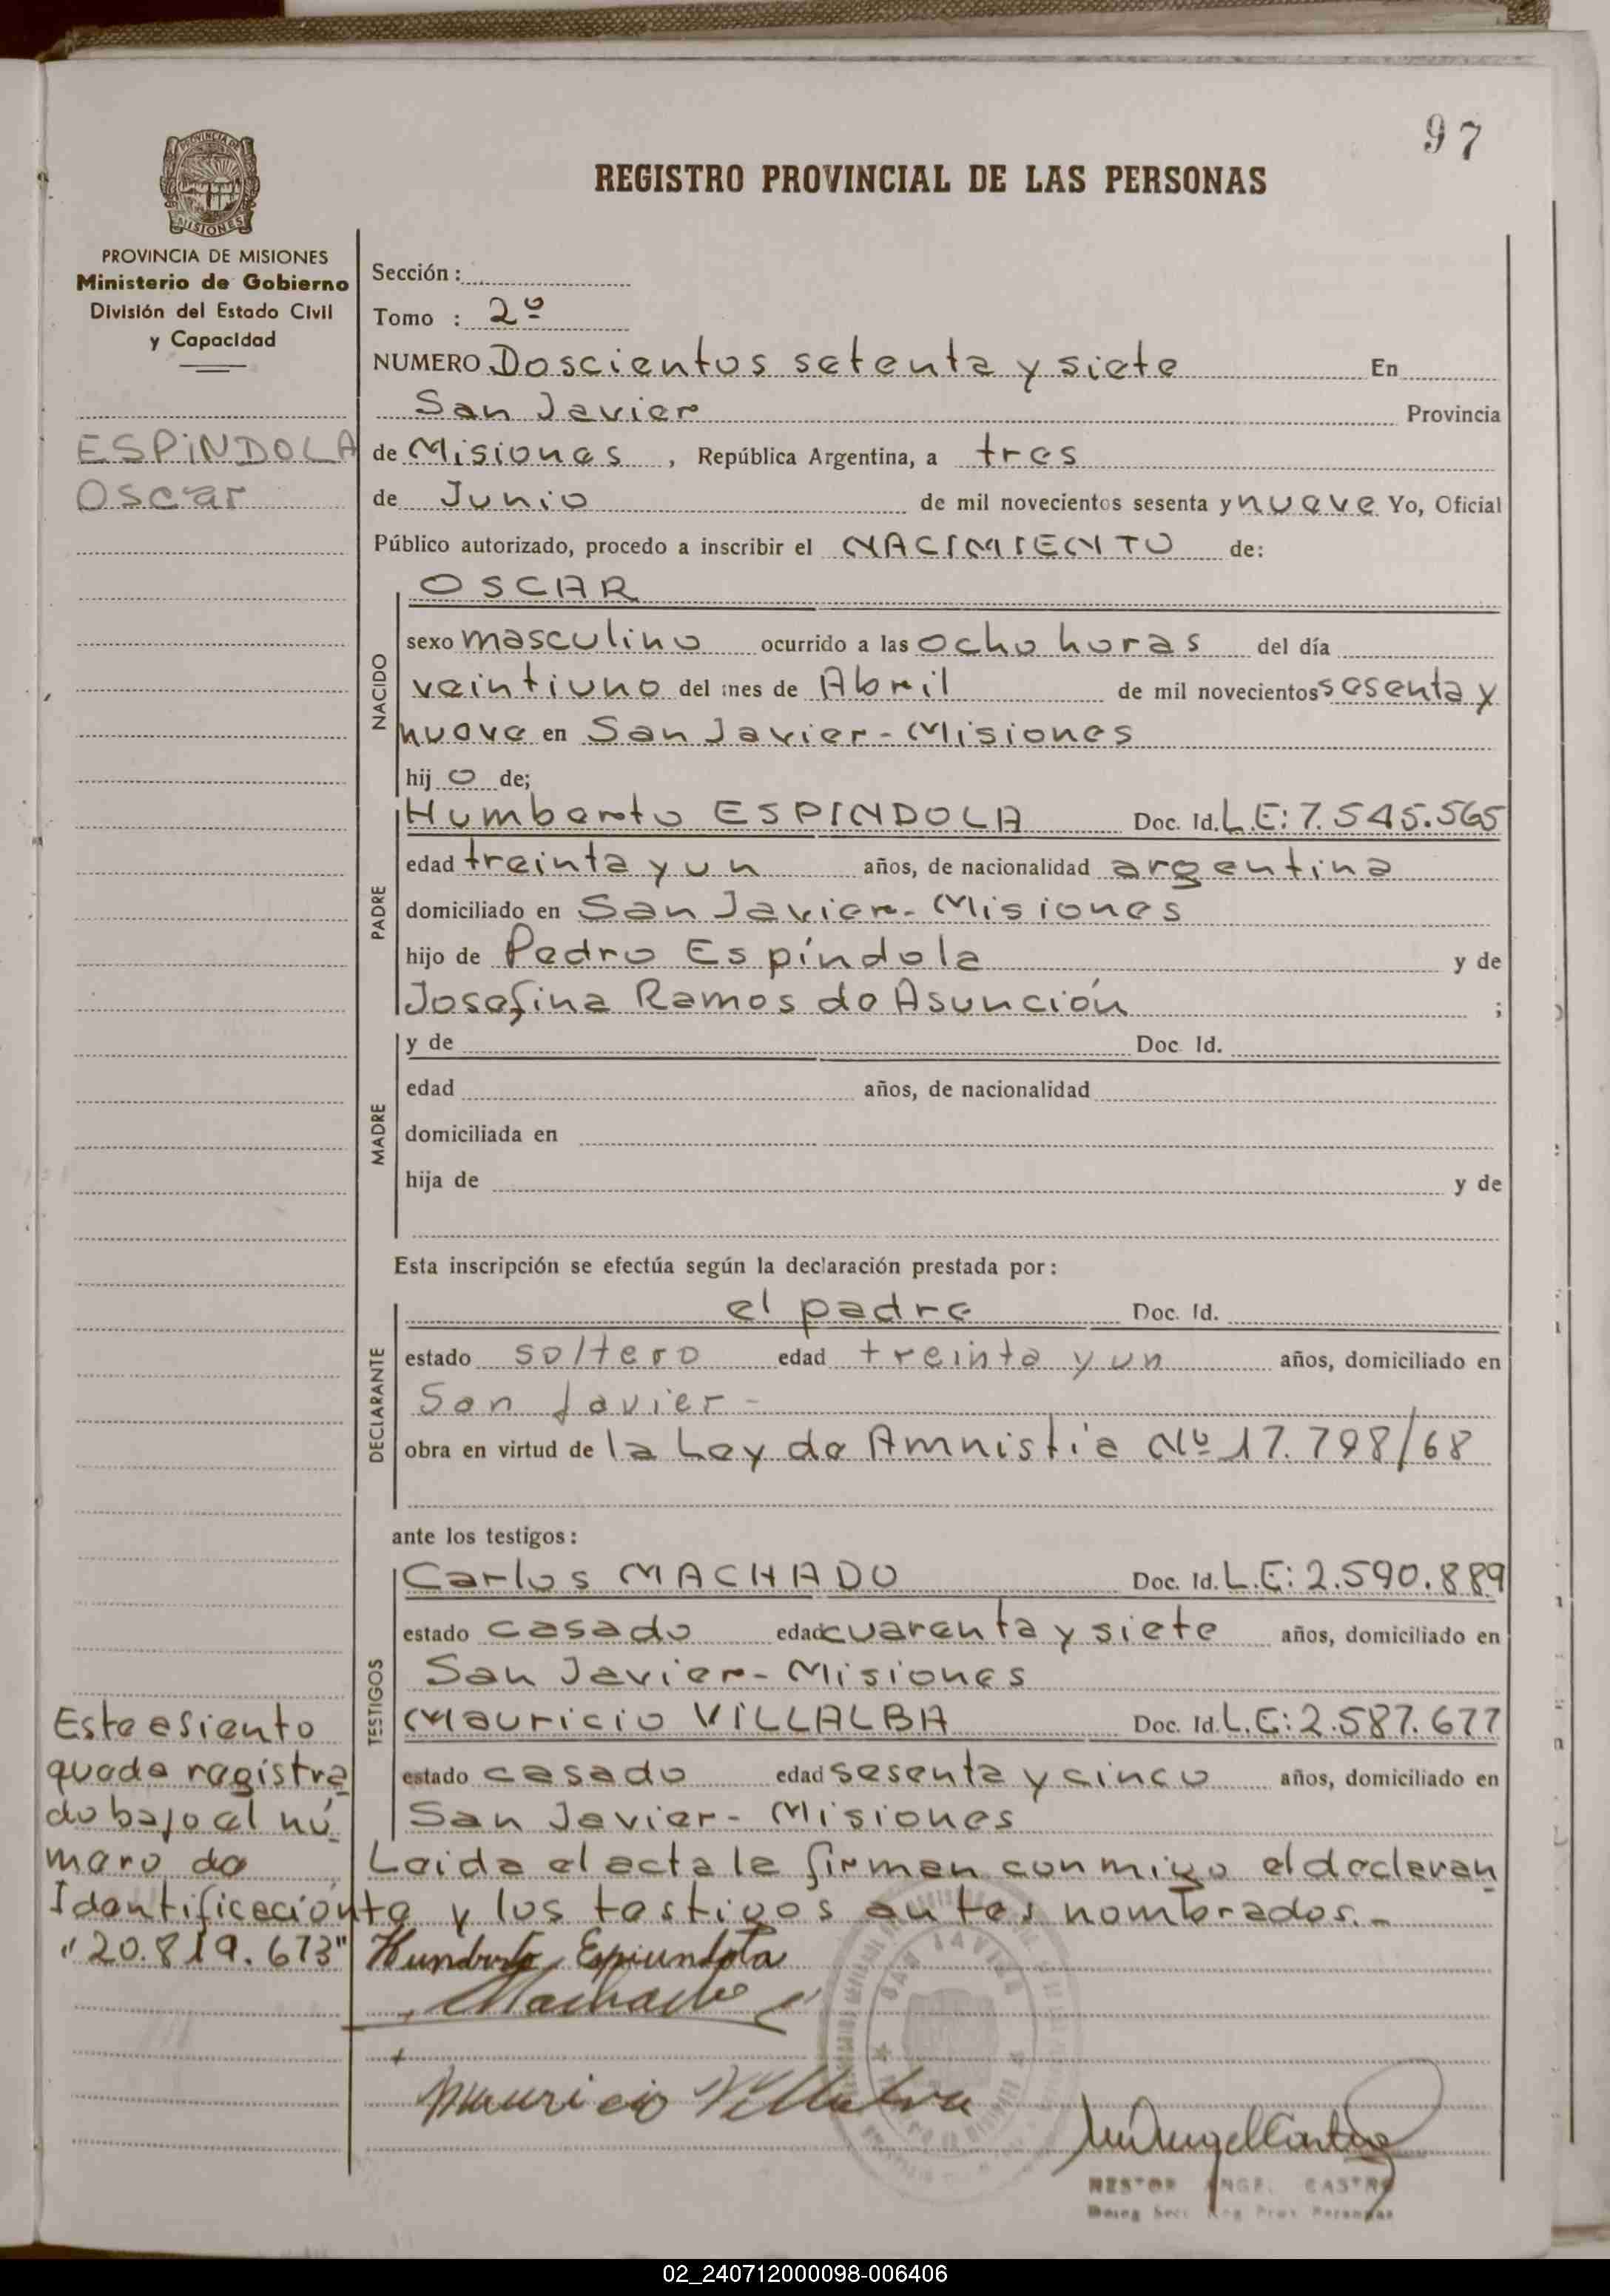 97
REGISTRO PROVINCIAL DE LAS PERSONAS
PROVINCIA DE MISIONES
Ministerio de Gobierno
División del Estado Civil
y Capacidad
ESPINDOLA
Oscar
Sección :
Tomo : 2º
NUMERO Doscientos setenta y siete En
San Javier Provincia
de Misiones, República Argentina, a tres
de Junio de mil novecientos sesenta y nueve Yo, Oficial
Público autorizado, procedo a inscribir el NACIMIENTO de:
NACIDO
OSCAR
sexo masculino ocurrido a las ocho horas del día
veintiuno del mes de Abril de mil novecientos sesenta y
nueve en San Javier - Misiones
hij o de;
PADRE
Humberto ESPINDOLA Doc. Id. L.E: 7.545.565
edad treinta y un años, de nacionalidad argentina
domiciliado en San Javier - Misiones
hijo de Pedro Espíndola y de
Josefina Ramos de Asunción ;
MADRE
y de Doc. Id.
edad años, de nacionalidad
domiciliada en
hija de y de
Esta inscripción se efectúa según la declaración prestada por:
DECLARANTE
el padre Doc. Id.
estado soltero edad treinta y un años, domiciliado en
San Javier -
obra en virtud de la Ley de Amnistía Nº 17.798/68
ante los testigos:
TESTIGOS
Carlos MACHADO Doc. Id. L.E: 2.590.889
estado casado edad cuarenta y siete años, domiciliado en
San Javier - Misiones
Mauricio VILLALBA Doc. Id. L.E: 2.587.677
estado casado edad sesenta y cinco años, domiciliado en
San Javier - Misiones
Leida el acta la firman conmigo el declaran
te y los testigos antes nombrados.-
Este asiento
queda registra
do bajo el nú-
mero de
Identificación
"20.819.673"
Humberto Espiundola
Machado
Mauricio Villalva
SAN JAVIER
NESTOR ANGEL CASTRO
02_240712000098-006406